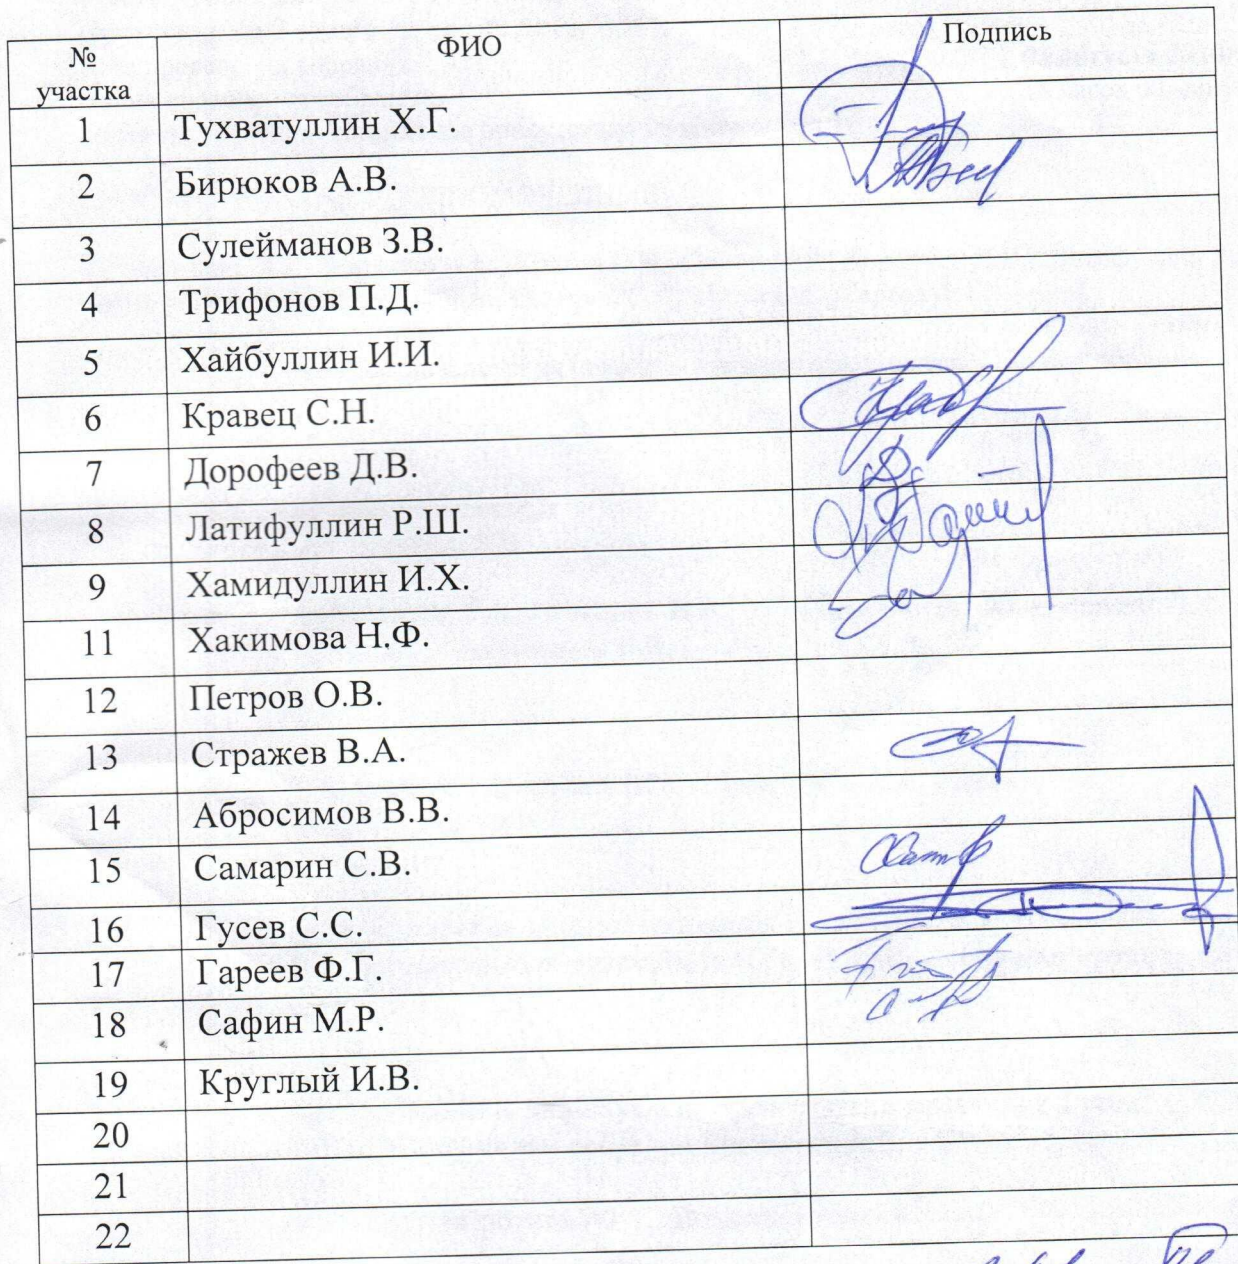 № участка ФИО Подпись
1 Тухватуллин Х.Г.
2 Бирюков А.В.
3 Сулейманов З.В.
4 Трифонов П.Д.
5 Хайбуллин И.И.
6 Кравец С.Н.
7 Дорофеев Д.В.
8 Латифуллин Р.Ш.
9 Хамидуллин И.Х.
11 Хакимова Н.Ф.
12 Петров О.В.
13 Стражев В.А.
14 Абросимов В.В.
15 Самарин С.В.
16 Гусев С.С.
17 Гареев Ф.Г
18 Сафин М.Р.
19 Круглый И.В.
20
21
22